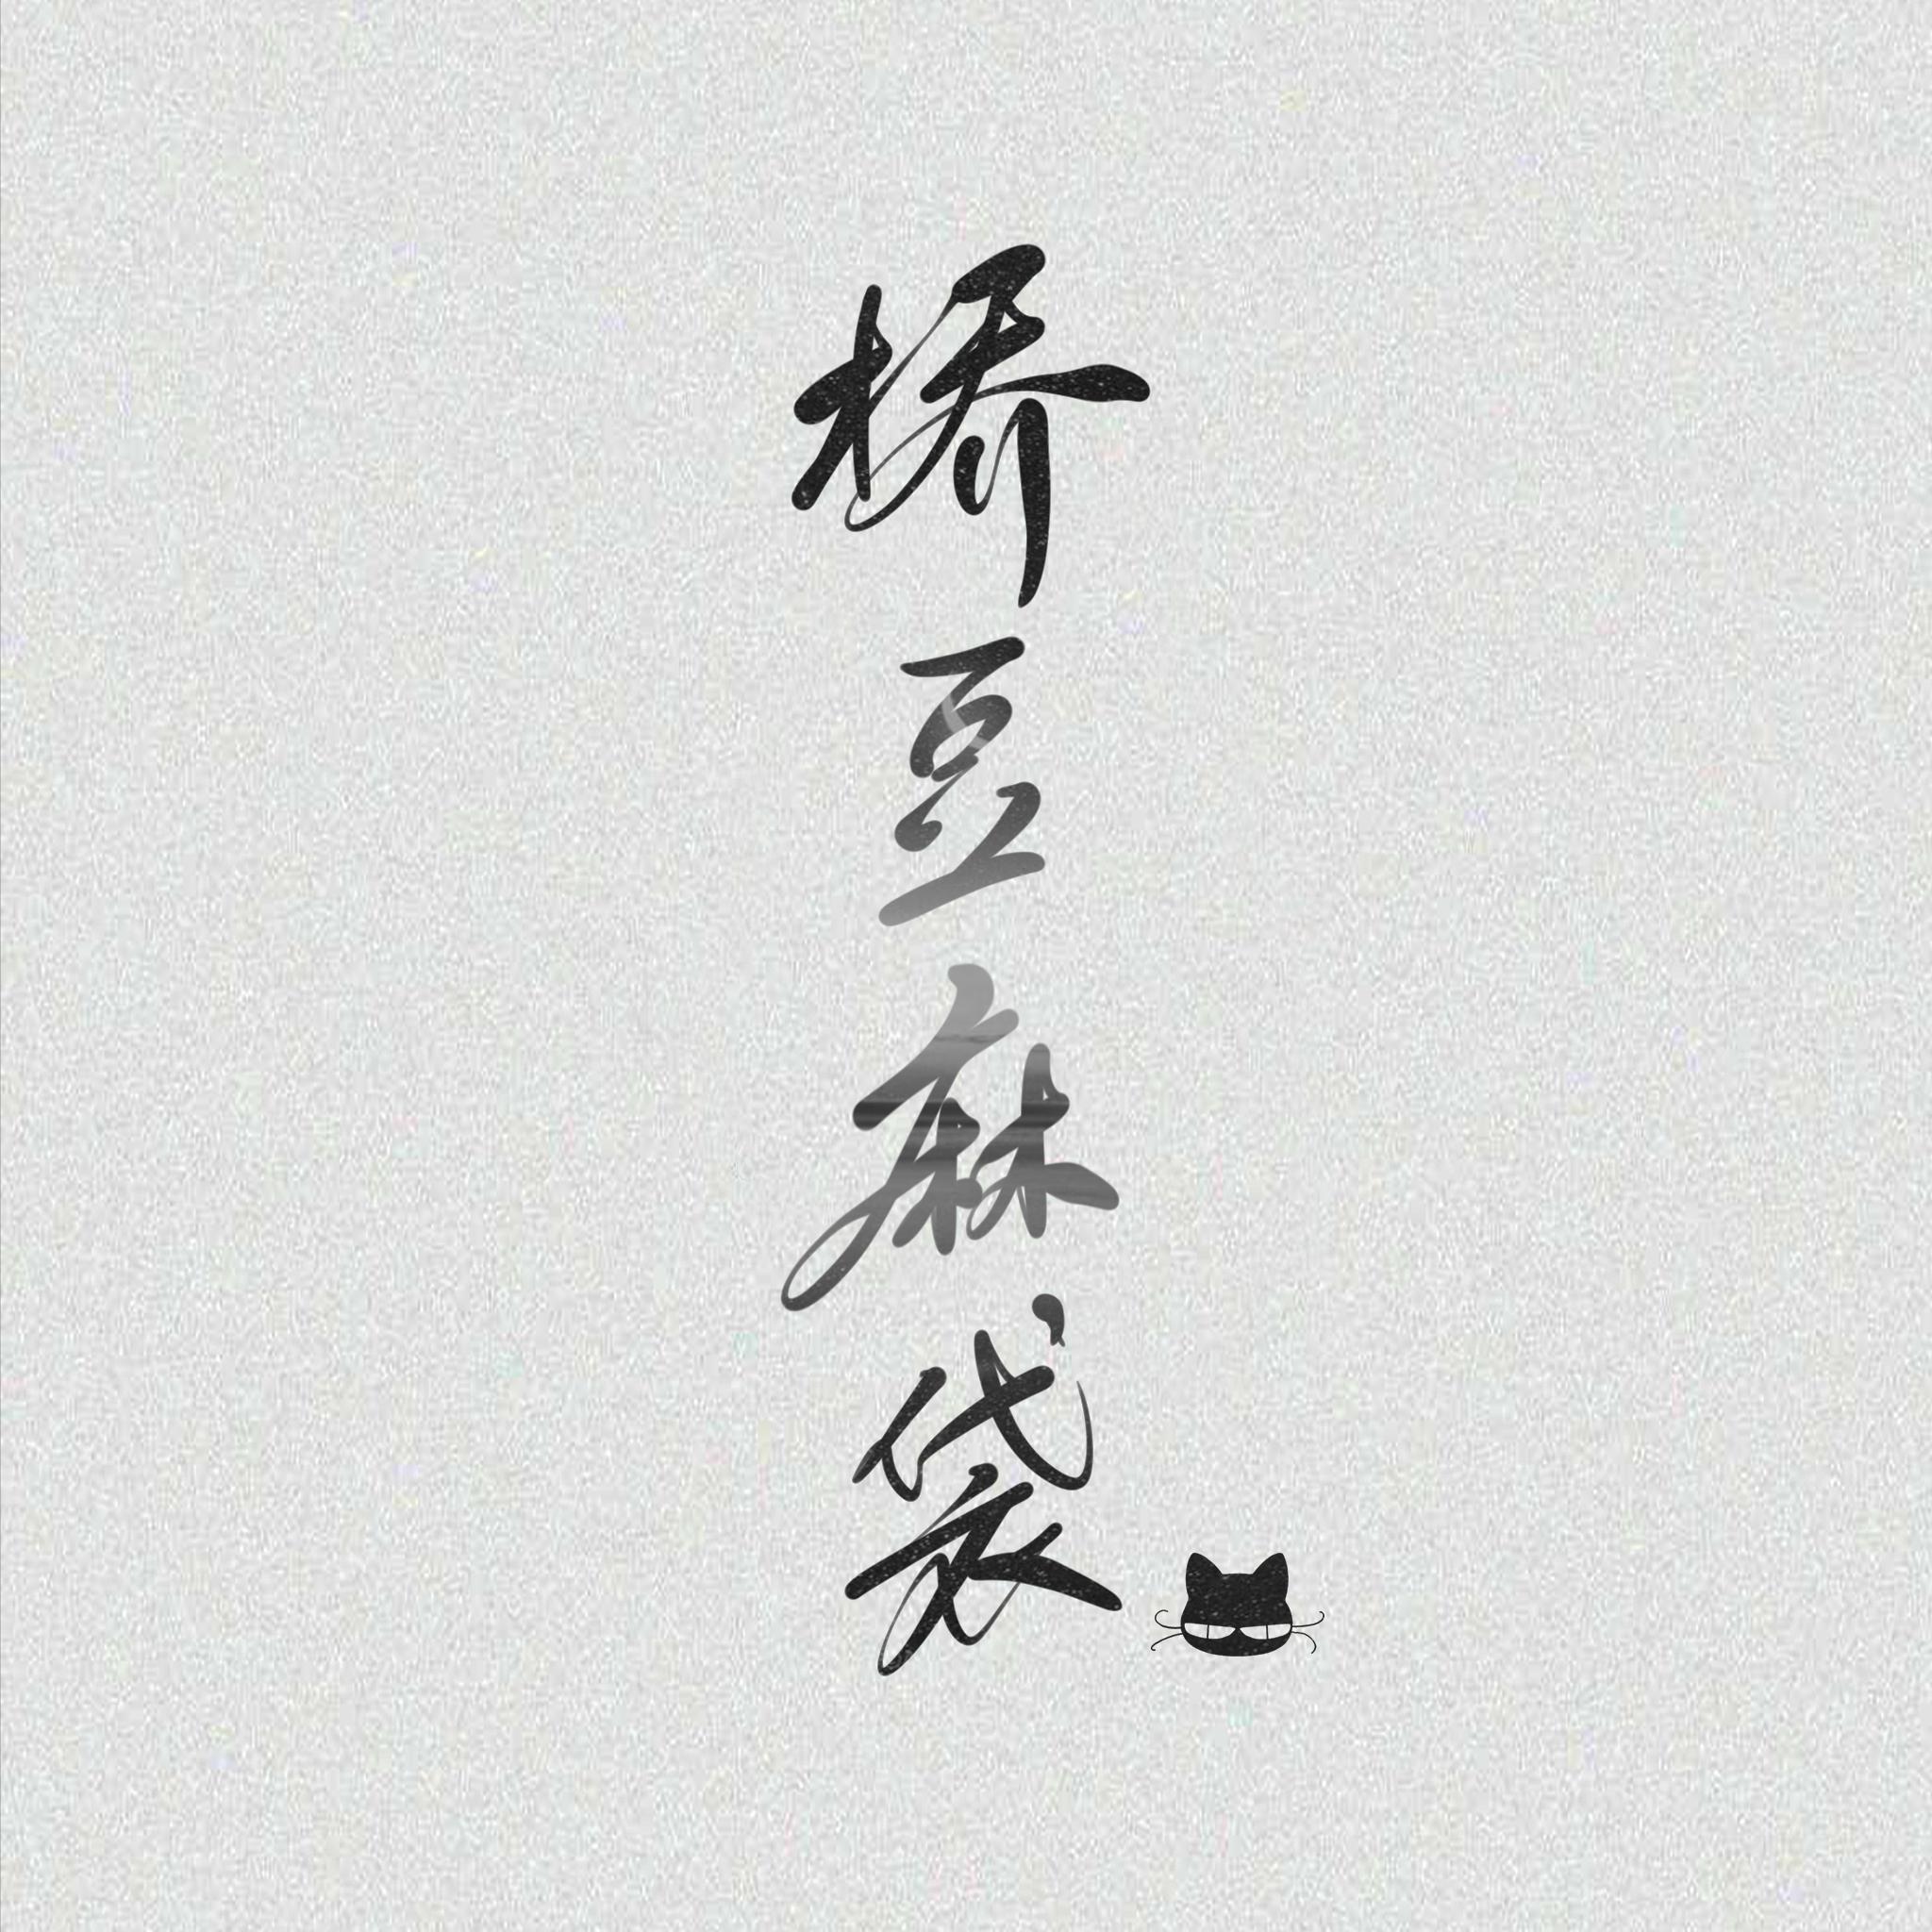 桥豆麻袋